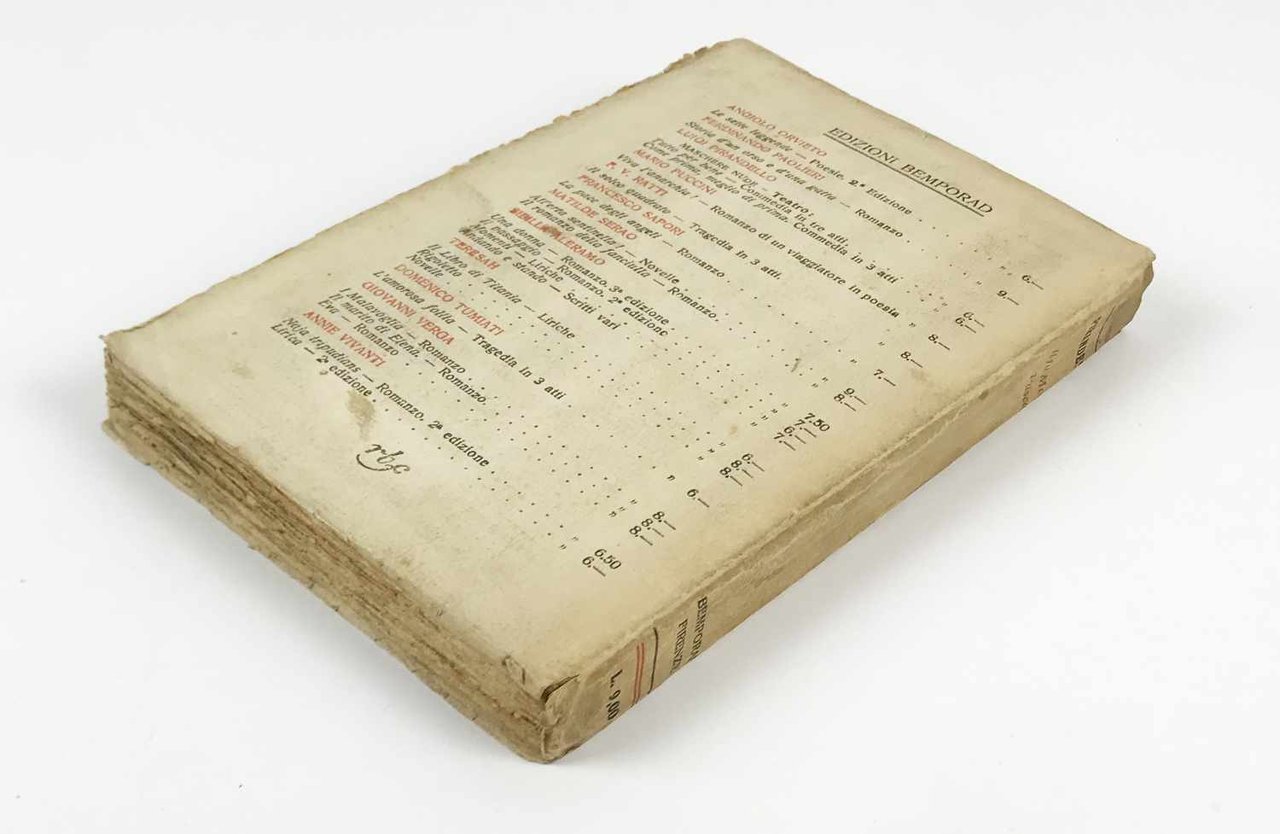 EDIZIONI BEMPORAD
ANGIOLO ORVIETO
Le sette leggende — Poesie. 2ª Edizione . . . . „ 6.—
FERDINANDO PAOLIERI
Storia d'un orso e d'una gatta — Romanzo . . . . „ 9.—
LUIGI PIRANDELLO
MASCHERE NUDE — Teatro:
Tutto per bene — Commedia in tre atti. . . . . „ 6.—
Come prima, meglio di prima. Commedia in 3 atti „ 6.—
MARIO PUCCINI
Viva l'anarchia! — Romanzo di un viaggiatore in poesia „ 8.—
F. V. RATTI
Il solco quadrato — Tragedia in 3 atti. . . . . „ 8.—
FRANCESCO SAPORI
La pace degli angeli — Romanzo . . . . „ 7.—
MATILDE SERAO
All'erta sentinella! — Novelle . . . . „ 9.—
Il romanzo della fanciulla — Romanzo . . . . „ 8.—
ALERAMO
Una donna — Romanzo. 3ª edizione . . . . „ 7.50
Il passaggio — Romanzo. 2ª edizione . . . . „ 6.—
Momenti — Liriche . . . . „ 7.—
Andando e stando — Scritti vari . . . .
TERESAH
Il Libro di Titania — Liriche . . . . „ 6.—
Rigoletto . . . . „ 8.—
Novelle . . . . „ 8.—
DOMENICO TUMIATI
L'amorosa follia — Tragedia in 3 atti . . . . „ 6.—
GIOVANNI VERGA
I Malavoglia — Romanzo . . . . „ 8.—
Il marito di Elena. — Romanzo. . . . . „ 8.—
Eva — Romanzo . . . . „ 8.—
ANNIE VIVANTI
Naja tripudians — Romanzo. 2ª edizione . . . . „ 6.50
Lirica — 2ª edizione . . . . „ 6.—
BEMPORAD
FIRENZE